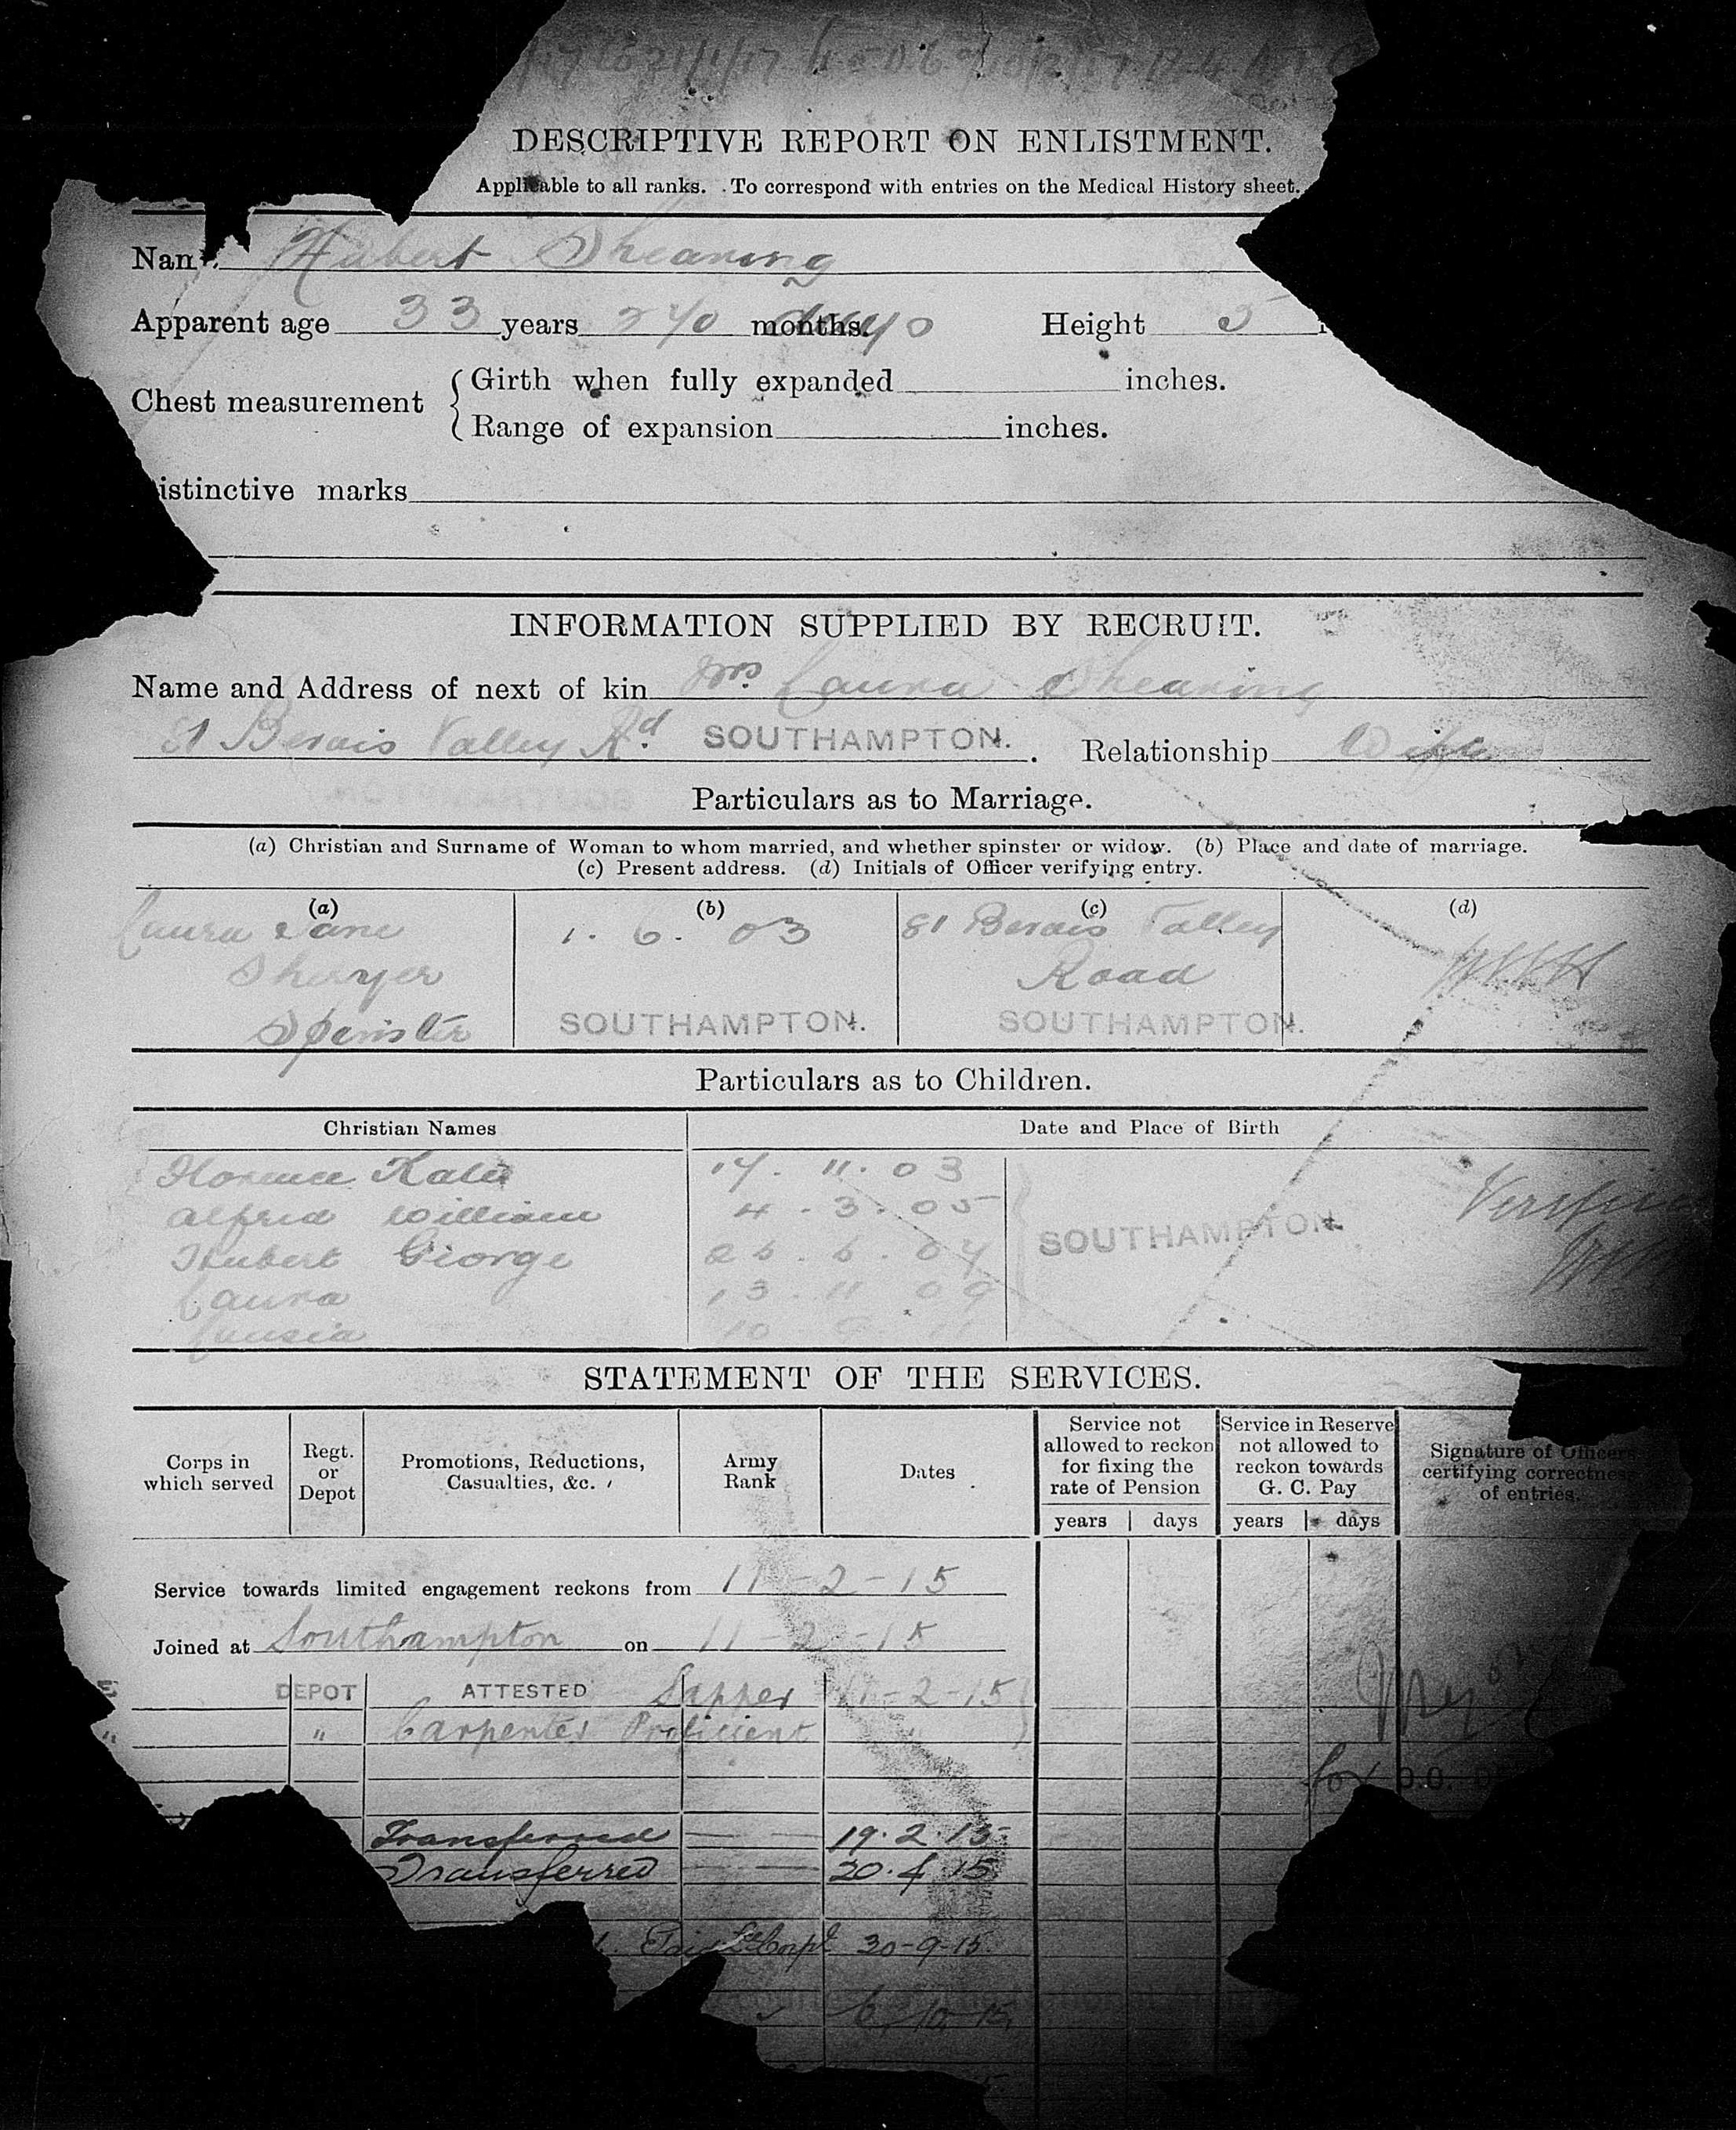 DESCRIPTIVE REPORT ON ENLISTMENT.
Applicable to all ranks. To correspond with entries on the Medical History sheet.
Nam Hubert Shearing
Apparent age 33 years 240 months. days Height 5
Chest measurement { Girth when fully expanded inches.
Range of expansion inches.
istinctive marks
INFORMATION SUPPLIED BY RECRUIT.
Name and Address of next of kin Mrs Laura Shearing
81 Bevois Valley Rd. SOUTHAMPTON. Relationship Wife
Particulars as to Marriage.
(a) Christian and Surname of Woman to whom married, and whether spinster or widow. (b) Place and date of marriage.
(c) Present address. (d) Initials of Officer verifying entry.
(a) (b) (c) (d)
Laura Jane 1. 6. 03 81 Bevois Valley
Shayer Road
Spinster SOUTHAMPTON. SOUTHAMPTON.
Particulars as to Children.
Christian Names Date and Place of Birth
Florence Kate 17. 11. 03
Alfred William 4. 3. 05
Hubert George 26. 6. 07 SOUTHAMPTON.
Laura 13. 11 09
10 11
STATEMENT OF THE SERVICES.
Corps in which served Regt. or Depot Promotions, Reductions, Casualties, &c. Army Rank Dates Service not allowed to reckon for fixing the rate of Pension Service in Reserve not allowed to reckon towards G. C. Pay Signature of Officers certifying correctness of entries.
years days years days
Service towards limited engagement reckons from 11-2-15
Joined at Southampton on 11-2-15
DEPOT ATTESTED Sapper 11-2-15
" " Carpenter Proficient
for O.O.
Transferred 19.2.15
Transferred 20.4.15
Paid L/Corpl 30-9-15.
6/10/15